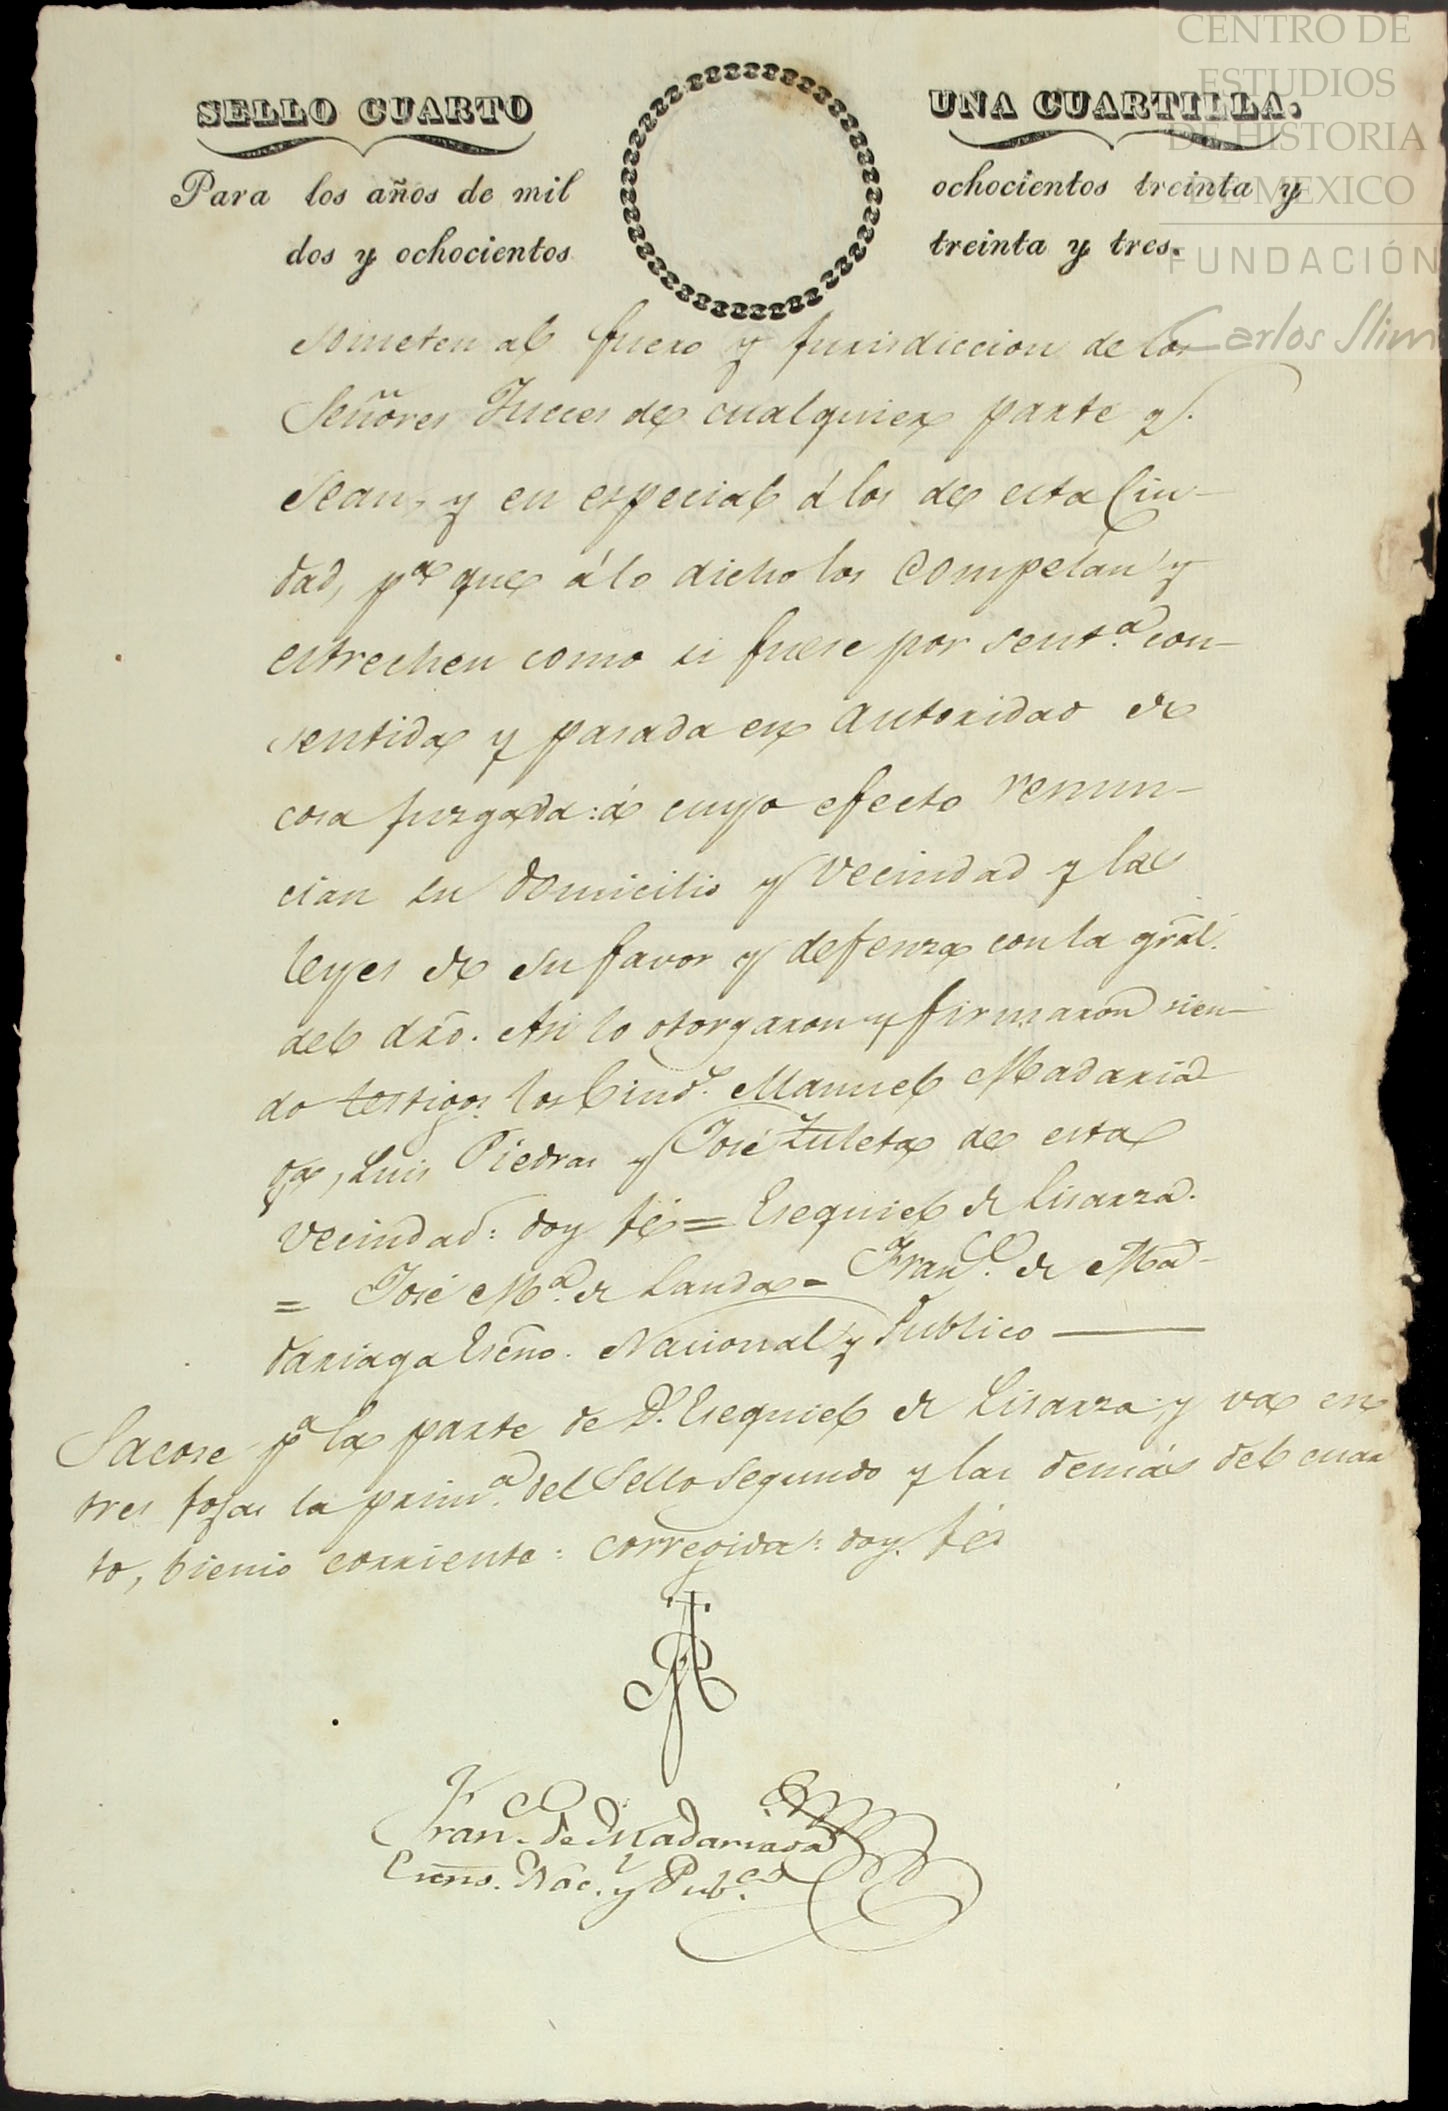 CENTRO DE
ESTUDIOS
DE HISTORIA
DE MEXICO
FUNDACIÓN
Carlos Slim
SELLO CUARTO
UNA CUARTILLA.
Para los años de mil ochocientos treinta y
dos y ochocientos treinta y tres.
someten al fuero y jurisdiccion de los
Señores Jueces de cualquier parte q.
sean, y en especial á los de esta Ciu-
dad, pa. que á lo dicho los compelan y
estrechen como si fuese por senta. con-
sentida y pasada en autoridad de
cosa juzgada: á cuyo efecto renun-
cian su domicilio y vecindad y las
leyes de su favor y defenza con la gral.
del dro. Asi lo otorgaron y firmaron sien-
do testigos los Ciuds. Manuel Madaria-
ga, Luis Piedras y José Zuleta de esta
vecindad: doy fé = Esequiel de Lisarza.
= José Ma. de Landa = Franco. de Ma-
dariaga Escno. Nacional y Publico —
Sacose pa. la parte de D. Esequiel de Lisarza y va en
tres fojas la prima. del Sello Segundo y las demás del cuar
to, bienio corriente: corregida: doy fé
Franco. de Madariaga
Escno. Nacl. y Pubco.